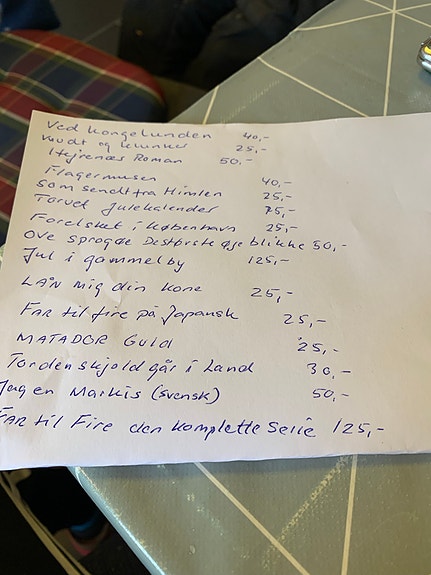 Ved Kongelunden 40,-
Knudt og 25,-
Hejrenæs Roman 50,-
Flagermusen 40,-
som sendt fra Himlen 25,-
Torvet Julekalender 75,-
Forelsket i København 25,-
Ove sprogøe De største øjeblikke 50,-
Jul i gammelby 125,-
LÅN mig din kone 25,-
FAR til fire på Japansk 25,-
MATADOR Guld 25,-
Tordenskjold går i Land 30,-
Jagen Markis (svensk) 50,-
FAR til Fire den komplette Serie 125,-